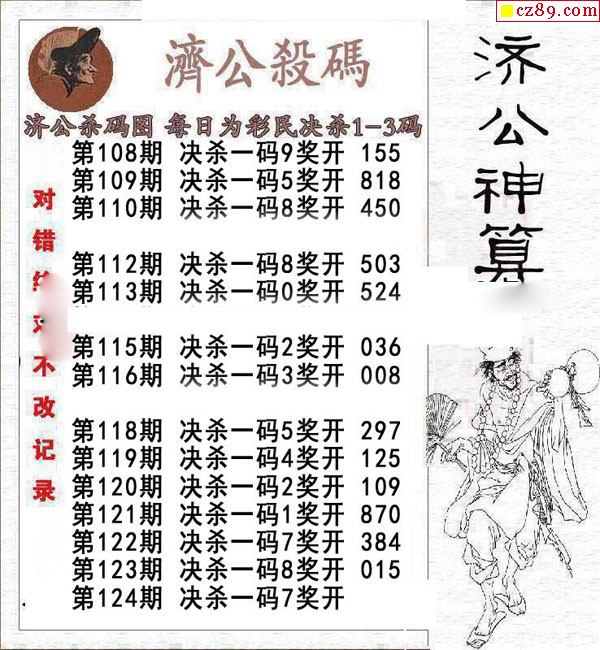 cz89.com
濟公殺碼
济公杀码图 每日为彩民决杀1-3码
第108期 决杀一码9奖开 155
第109期 决杀一码5奖开 818
第110期 决杀一码8奖开 450
第112期 决杀一码8奖开 503
第113期 决杀一码0奖开 524
第115期 决杀一码2奖开 036
第116期 决杀一码3奖开 008
第118期 决杀一码5奖开 297
第119期 决杀一码4奖开 125
第120期 决杀一码2奖开 109
第121期 决杀一码1奖开 870
第122期 决杀一码7奖开 384
第123期 决杀一码8奖开 015
第124期 决杀一码7奖开
对错绝对不改记录
济公神算